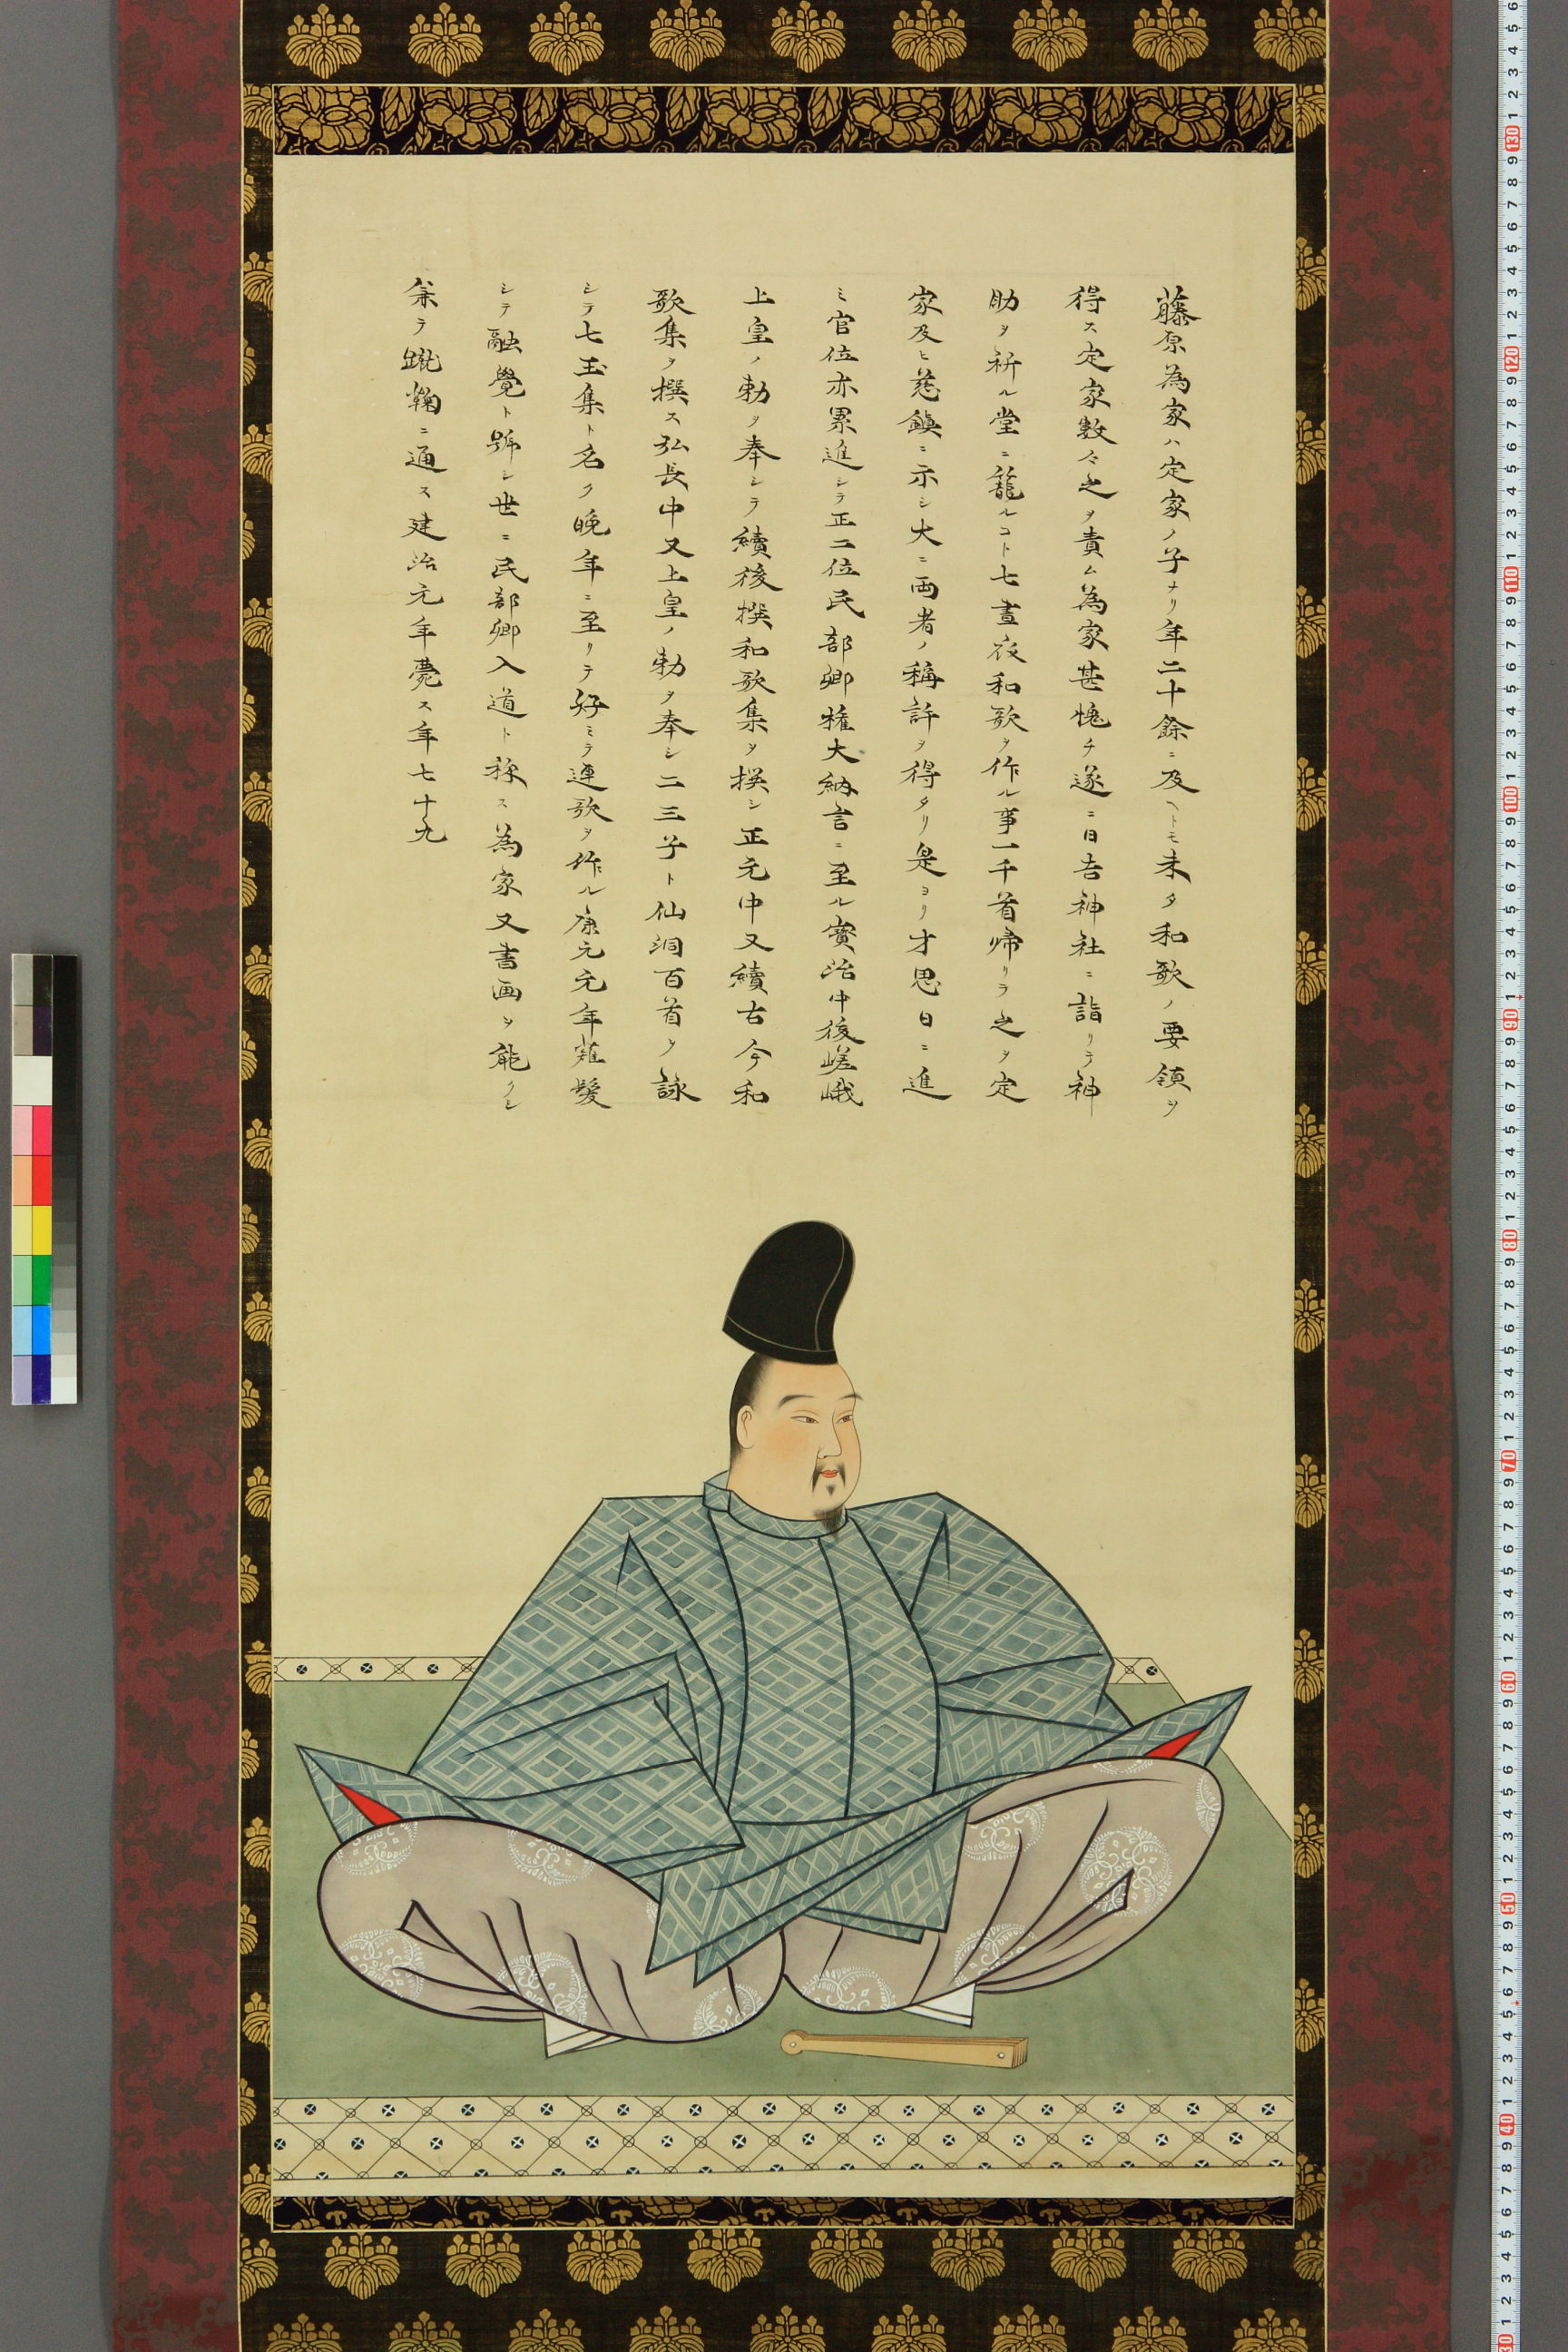 藤原為家ハ定家ノ子ナリ年二十餘ニ及ヘトモ未タ和歌ノ要領ヲ
得ス定家数々之ヲ責ム為家甚愧チ遂ニ日吉神社ニ詣リテ神
助ヲ祈ル堂ニ籠ルコト七晝夜和歌ヲ作ル事一千首帰リテ之ヲ定
家及ヒ慈鎮ニ示シ大ニ両者ノ稱許ヲ得タリ是ヨリ才思日ニ進
ミ官位亦累進シテ正二位民部卿権大納言ニ至ル寳治中後嵯峨
上皇ノ勅ヲ奉シテ續後撰和歌集ヲ撰シ正元中又續古今和
歌集ヲ撰ス弘長中又上皇ノ勅ヲ奉シ二三子ト仙洞百首ヲ詠
シテ七玉集ト名ク晩年ニ至リテ好ミテ連歌ヲ作ル康元元年薙髪
シテ融覺ト號シ世ニ民部卿入道ト称ス為家又書画ヲ能クシ
兼テ蹴鞠ニ通ス建治元年薨ス年七十九